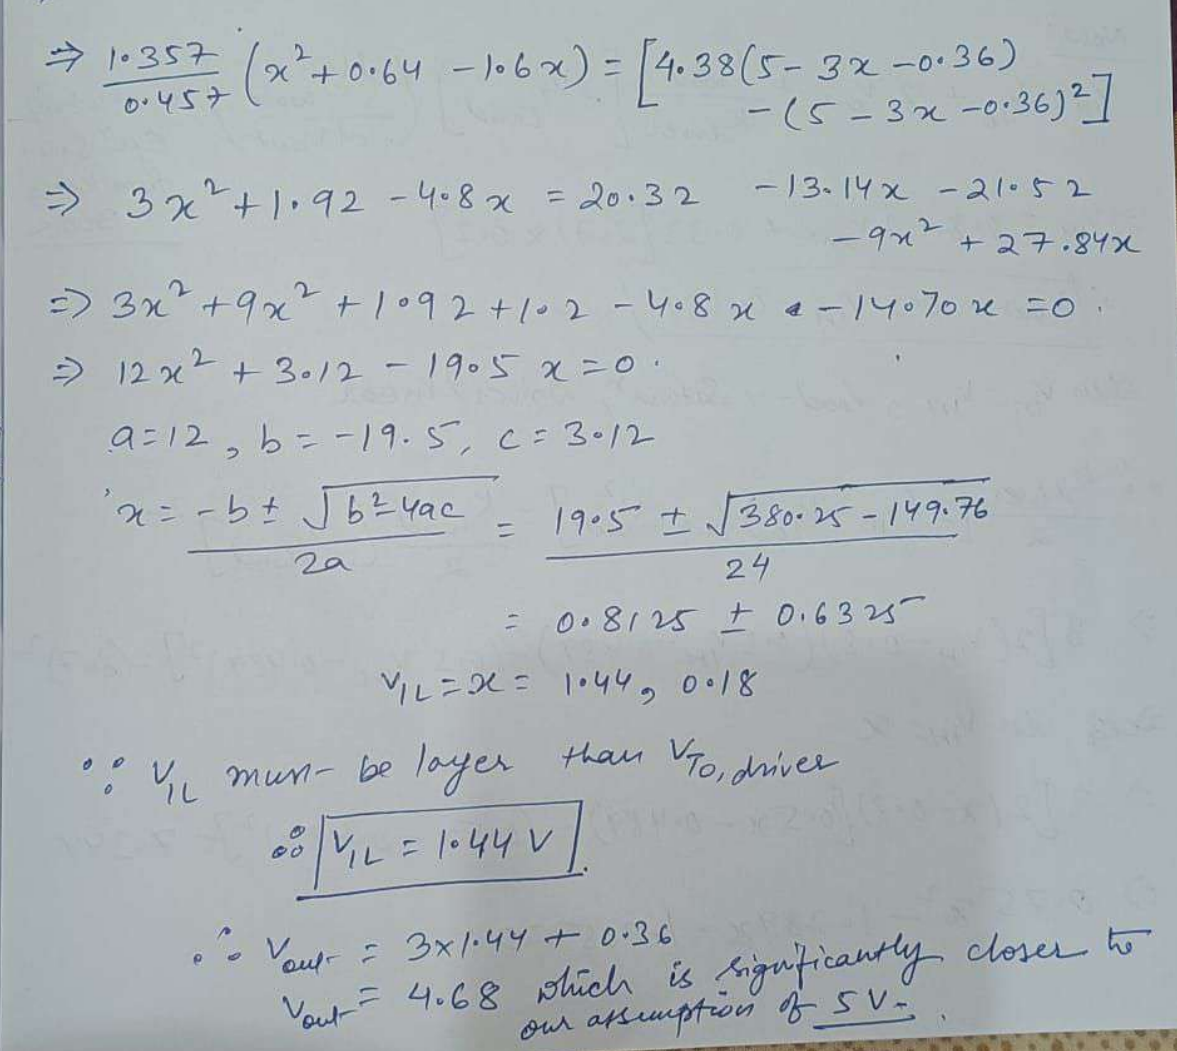 ⇒ 1.357/0.457 (x² + 0.64 - 1.6x) = [4.38(5 - 3x - 0.36)
- (5 - 3x - 0.36)²]
⇒ 3x² + 1.92 - 4.8x = 20.32 - 13.14x - 21.52
- 9x² + 27.84x
⇒ 3x² + 9x² + 1.92 + 1.2 - 4.8x - 14.70x = 0.
⇒ 12x² + 3.12 - 19.5x = 0.
a=12, b = -19.5, c = 3.12
x = -b ± √b²-4ac / 2a = 19.5 ± √380.25 - 149.76 / 24
= 0.8125 ± 0.6325
V_IL = x = 1.44, 0.18
∵ V_IL must be layer than V_TO, driver
∴ V_IL = 1.44 V.
∴ Vout = 3x1.44 + 0.36
Vout = 4.68 which is significantly closer to
our assumption of 5V.